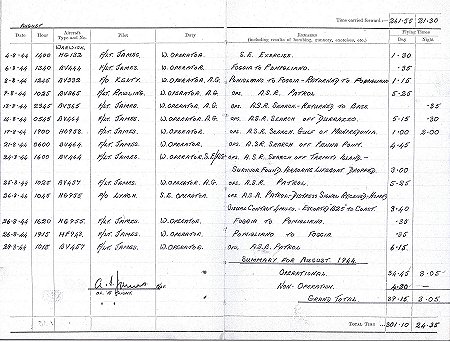 AUGUST
Time carried forward :— 261·55 21·30
Date Hour Aircraft Type and No. Pilot Duty REMARKS (including results of bombing, gunnery, exercises, etc.) Flying Times Day Night
WARWICK
4-8-44 1400 HG132 F/LT. JAMES. W. OPERATOR. S.E. EXERCISE. 1·30
6-8-44 1240 AV464 F/LT. JAMES. W. OPERATOR. FOGGIA TO POMIGLIANO. ·35
1245 W. OPERATOR, A.G. POMIGLIANO TO FOGGIA - RETURNED TO POMIGLIANO 1·15
7-8-44 1025 F/LT. W. OPERATOR, A.G. OPS. A.S.R. PATROL 5·25
2345 F/LT. JAMES. W. OPERATOR. A.G. OPS. A.S.R. SEARCH - RETURNED TO BASE. ·35
0545 F/LT. JAMES. W. OPERATOR. A.G. OPS. A.S.R. SEARCH OFF DURAZZO. 5·15 ·30
17-8-44 1900 HG958. F/LT. JAMES. W. OPERATOR. OPS. A.S.R. SEARCH. GULF OF 1·00 2·00
21-8-44 0600 F/LT. JAMES. W. OPERATOR. OPS. A.S.R. SEARCH OFF POINT. 4·45
24-8-44 1600 F/LT. JAMES. W. OPERATOR. OPS. A.S.R. SEARCH OFF TREMITI ISLAND -
SURVIVOR FOUND, AIRBORNE LIFEBOAT DROPPED 3·00
25-8-44 1025 AV457 F/LT. JAMES. W. OPERATOR. A.G. OPS. A.S.R. PATROL. 5·25
26-8-44 1045 HG955 F/O LYNCH. S.E. OPERATOR. OPS A.S.R. PATROL - DISTRESS SIGNAL RECEIVED,
ESCORTED B25 TO COAST. 3·40
26-8-44 1620 HG955 F/LT. JAMES. W. OPERATOR. FOGGIA TO POMIGLIANO. ·35
1915 F/LT. JAMES. W. OPERATOR. POMIGLIANO TO FOGGIA ·35
1015 AV457 F/LT. JAMES. W. OPERATOR. OPS. A.S.R. PATROL 6·15
SUMMARY FOR AUGUST 1944.
OPERATIONAL 34·45 3·05
NON-OPERATION. 4·30 —
GRAND TOTAL 39·15 3·05
TOTAL TIME ... 301·10 24·35